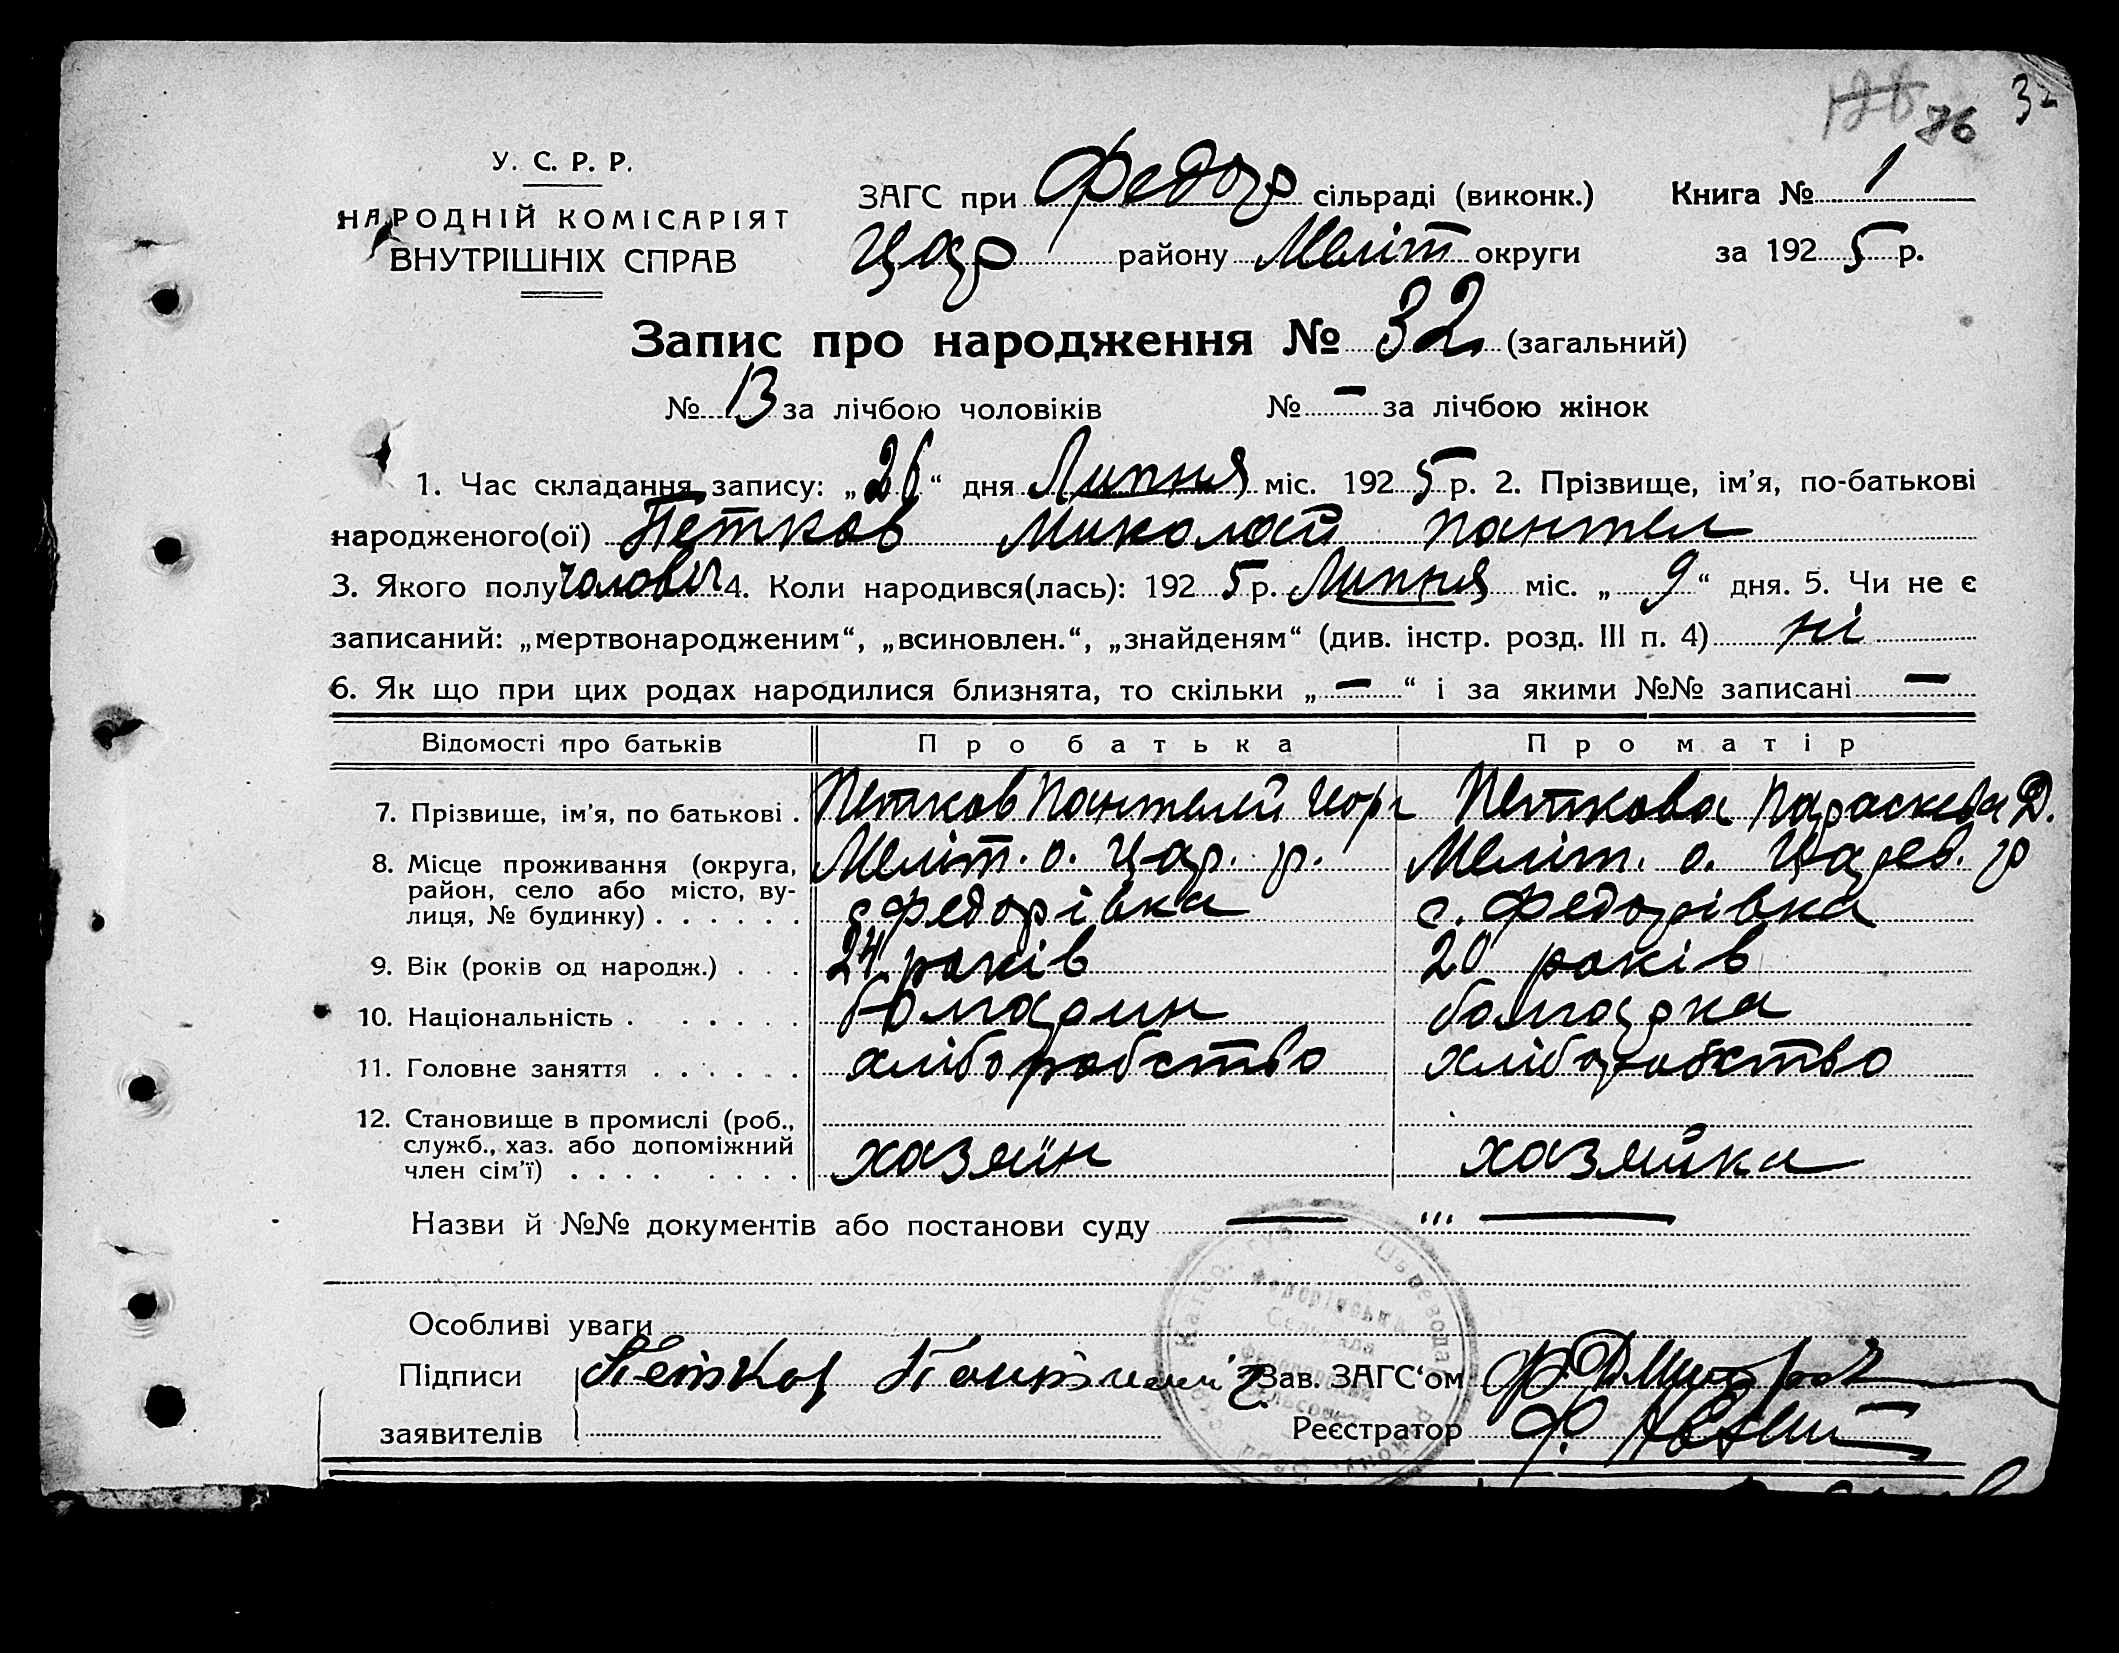 126 76 32
У. С. Р. Р.
НАРОДНІЙ КОМІСАРІЯТ
ВНУТРІШНІХ СПРАВ
ЗАГС при Федор сільраді (виконк.) Книга № 1
Цар району Меліт округи за 1925 р.
Запис про народження № 32 (загальний)
№ 13 за лічбою чоловіків № — за лічбою жінок
1. Час складання запису: „26“ дня Липня міс. 1925 р. 2. Прізвище, ім'я, по-батькові
народженого(ої) Петков Миколай Пантел
3. Якого полу чолові 4. Коли народився(лась): 1925 р. Липня міс. „9“ дня. 5. Чи не є
записаний: „мертвонародженим“, „всиновлен.“, „знайденям“ (див. інстр. розд. III п. 4) ні
6. Як що при цих родах народилися близнята, то скільки „—“ і за якими №№ записані —
Відомості про батьків Про батька Про матір
7. Прізвише, ім'я, по батькові . Петков Пантелей Георг Петкова Параскева Д.
8. Місце проживання (округа, Меліт. о. Цар. р. Меліт. о. Царев. р
район, село або місто, ву-
лиця, № будинку) . . . . . . с Федорівка с. Федорівка
9. Вік (років од народж.) . . . 24 років 20 років
10. Національність . . . . . . болгарин болгарка
11. Головне заняття . . . . . . хліборобство хліборобство
12. Становище в промислі (роб.,
служб., хаз. або допоміжний
член сім'ї) . . . . . . . . хазяїн хазяйка
Назви й №№ документів або постанови суду — ''' —
Особливі уваги
Підписи Петков Зав. ЗАГС‘ом
заявителів Реєстратор Ф.
Селрада